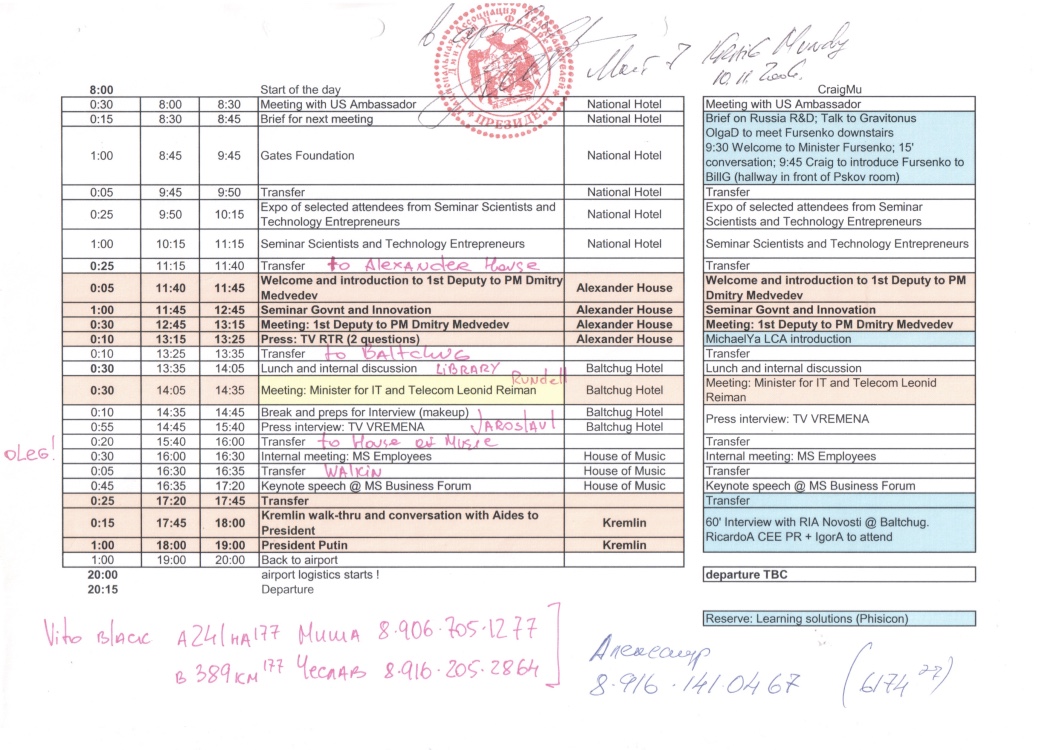 10.11.2006.
8:00 Start of the day CraigMu
0:30 8:00 8:30 Meeting with US Ambassador National Hotel Meeting with US Ambassador
0:15 8:30 8:45 Brief for next meeting National Hotel Brief on Russia R&D; Talk to Gravitonus
ПРЕЗИДЕНТ
OlgaD to meet Fursenko downstairs
9:30 Welcome to Minister Fursenko; 15'
1:00 8:45 9:45 Gates Foundation National Hotel conversation; 9:45 Craig to introduce Fursenko to
BillG (hallway in front of Pskov room)
0:05 9:45 9:50 Transfer National Hotel Transfer
0:25 9:50 10:15 Expo of selected attendees from Seminar Scientists and National Hotel Expo of selected attendees from Seminar
Technology Entrepreneurs Scientists and Technology Entrepreneurs
1:00 10:15 11:15 Seminar Scientists and Technology Entrepreneurs National Hotel Seminar Scientists and Technology Entrepreneurs
0:25 11:15 11:40 Transfer to Alexander House Transfer
0:05 11:40 11:45 Welcome and introduction to 1st Deputy to PM Dmitry Alexander House Welcome and introduction to 1st Deputy to PM
Medvedev Dmitry Medvedev
1:00 11:45 12:45 Seminar Govnt and Innovation Alexander House Seminar Govnt and Innovation
0:30 12:45 13:15 Meeting: 1st Deputy to PM Dmitry Medvedev Alexander House Meeting: 1st Deputy to PM Dmitry Medvedev
0:10 13:15 13:25 Press: TV RTR (2 questions) Alexander House MichaelYa LCA introduction
0:10 13:25 13:35 Transfer to BALTCHUG Transfer
0:30 13:35 14:05 Lunch and internal discussion LIBRARY Baltchug Hotel Lunch and internal discussion
Rundell
0:30 14:05 14:35 Meeting: Minister for IT and Telecom Leonid Reiman Baltchug Hotel Meeting: Minister for IT and Telecom Leonid
Reiman
0:10 14:35 14:45 Break and preps for Interview (makeup) Baltchug Hotel
0:55 14:45 15:40 Press interview: TV VREMENA YAROSLAVL Baltchug Hotel Press interview: TV VREMENA
0:20 15:40 16:00 Transfer to House of Music Transfer
OLEG!
0:30 16:00 16:30 Internal meeting: MS Employees House of Music Internal meeting: MS Employees
0:05 16:30 16:35 Transfer WALKIN House of Music Transfer
0:45 16:35 17:20 Keynote speech @ MS Business Forum House of Music Keynote speech @ MS Business Forum
0:25 17:20 17:45 Transfer Transfer
0:15 17:45 18:00 Kremlin walk-thru and conversation with Aides to Kremlin 60' Interview with RIA Novosti @ Baltchug.
President RicardoA CEE PR + IgorA to attend
1:00 18:00 19:00 President Putin Kremlin
1:00 19:00 20:00 Back to airport
20:00 airport logistics starts ! departure TBC
20:15 Departure
Reserve: Learning solutions (Phisicon)
Vito Black A241HA177 Миша 8.906.705.1277
В 389 КМ 177 Чеслав 8.916.205.2864
Александр
8.916.141.0467 (6174 77)